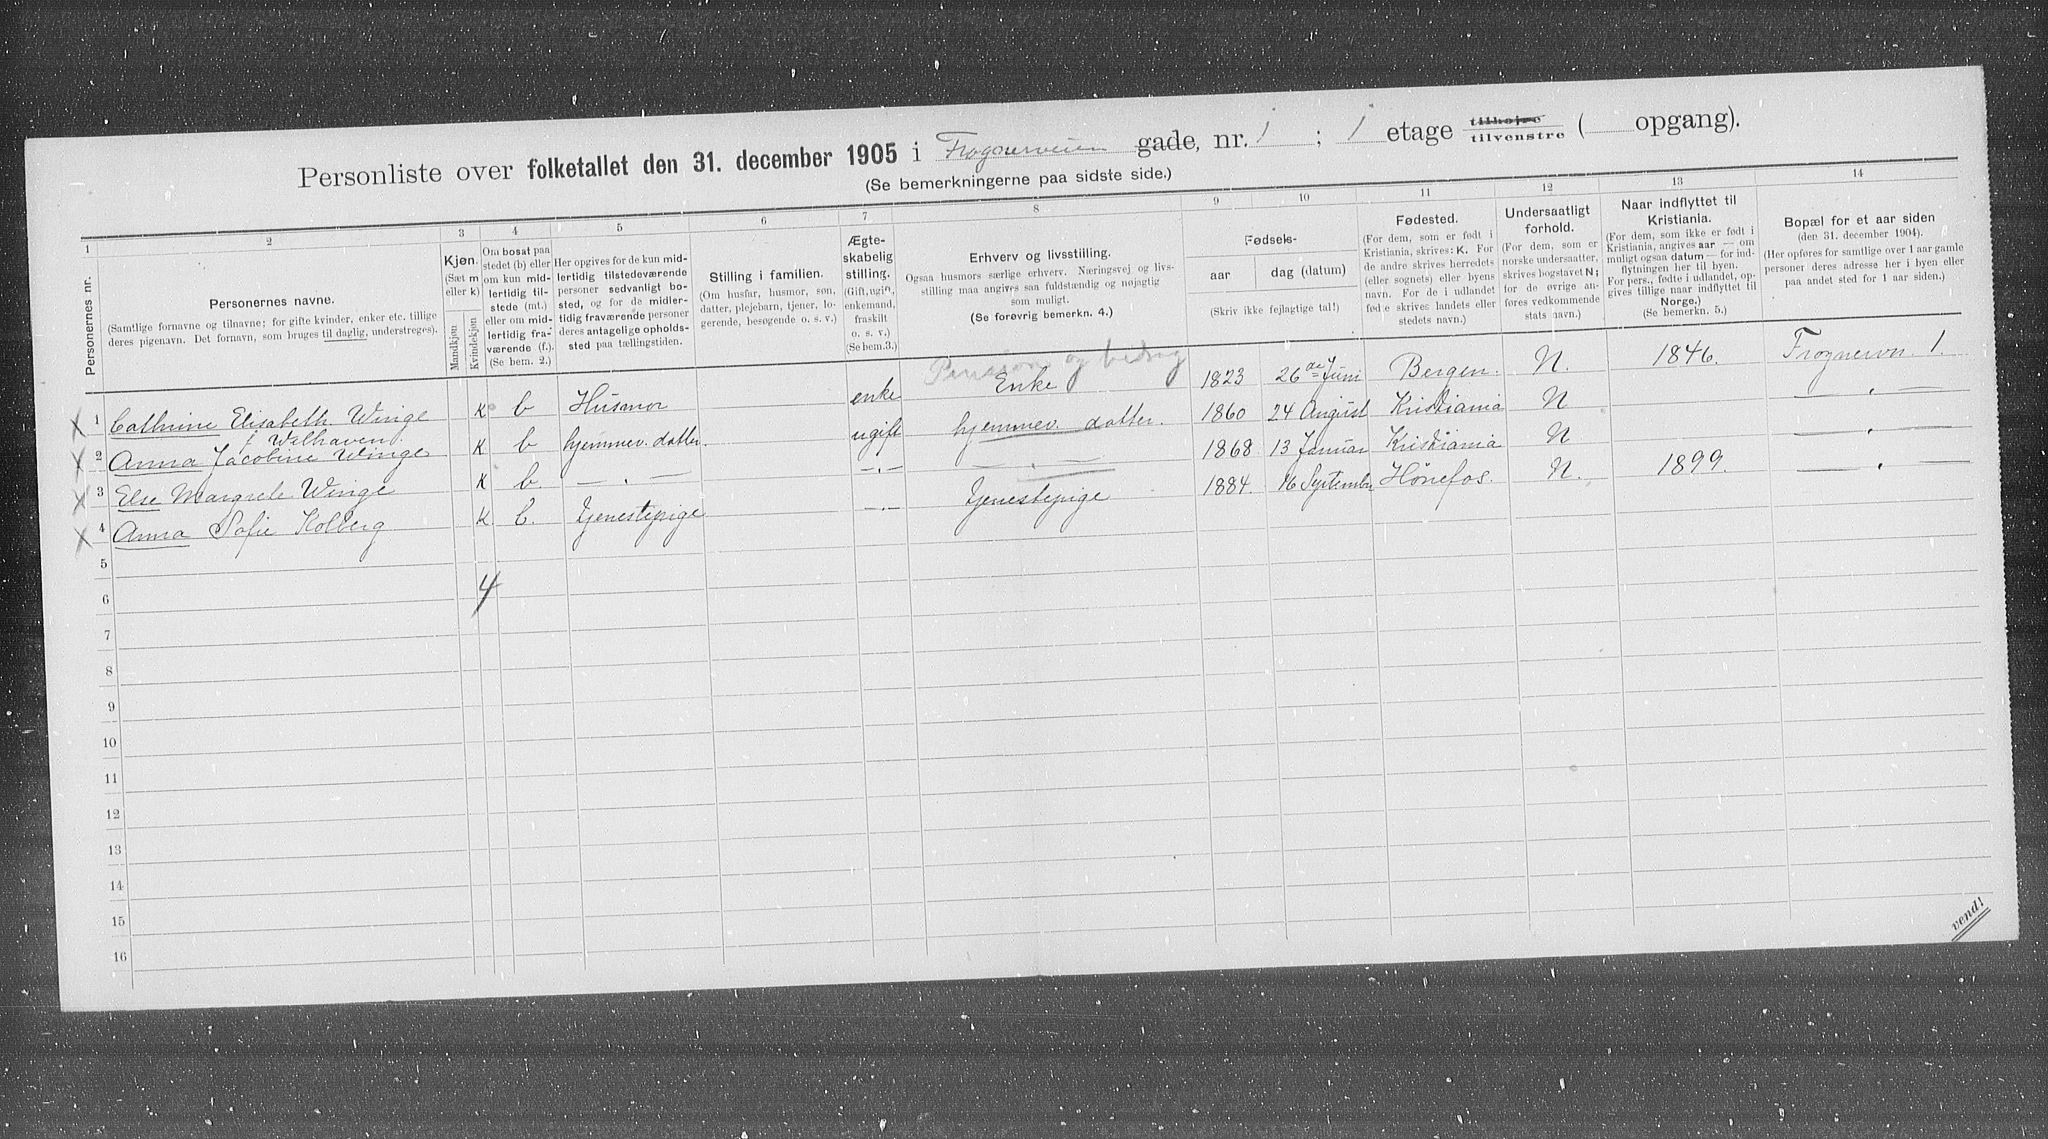 Personliste over folketallet den 31. december 1905 i Frognerveien gade, nr. 1 ; 1 etage tilhøjre tilvenstre ( opgang).
(Se bemerkningerne paa sidste side.)
1 2 3 4 5 6 7 8 9 10 11 12 13 14
Personernes nr.
Personernes navne.
(Samtlige fornavne og tilnavne; for gifte kvinder, enker etc. tillige
deres pigenavn. Det fornavn, som bruges til daglig, understreges).
Kjøn.
(Sæt m
eller k)
Mandkjøn
Kvindekjøn
Om bosat paa
stedet (b) eller
om kun mid-
lertidig til-
stede (mt.)
eller om mid-
lertidig fra-
værende (f.).
(Se bem. 2.)
Her opgives for de kun mid-
lertidig tilstedeværende
personer sedvanligt bo-
sted, og for de midler-
tidig fraværende personer
deres antagelige opholds-
sted paa tællingstiden.
Stilling i familien.
(Om husfar, husmor, søn,
datter, plejebarn, tjener, lo-
gerende, besøgende o. s. v.)
Ægte-
skabelig
stilling.
(Gift, ugift,
enkemand,
fraskilt
o. s. v.)
(Se bem.3.)
Erhverv og livsstilling.
Ogsaa husmors særlige erhverv. Næringsvej og livs-
stilling maa angives saa fuldstændig og nøjagtig
som muligt.
(Se forøvrig bemerkn. 4.)
Fødsels-
aar
dag (datum)
(Skriv ikke fejlagtige tal!)
Fødested.
(For dem, som er født i
Kristiania, skrives: K. For
de andre skrives herredets
(eller sognets) eller byens
navn. For de i udlandet
fødte skrives landets eller
stedets navn.)
Undersaatligt
forhold.
(For dem, som er
norske undersaatter,
skrives bogstavet N;
for de øvrige an-
føres vedkommende
stats navn.)
Naar indflyttet til
Kristiania.
(For dem, som ikke er født i
Kristiania, angives aar — om
muligt ogsaa datum — for ind-
flytningen her til byen.
For pers., fødte i udlandet, op-
gives tillige naar indflyttet til
Norge.)
(Se bemerkn. 5.)
Bopæl for et aar siden
(den 31. december 1904).
(Her opføres for samtlige over 1 aar gamle
personer deres adresse her i byen eller
paa andet sted for 1 aar siden.)
Pension og bidrag
X 1 Cathrine Elisabeth Winge k b Husmor enke Enke 1823 26de Juni Bergen. N. 1846. Frognervn. 1.
f. Welhaven.
X 2 Anna Jacobine Winge k b hjemmev. datter. ugift hjemmev. datter. 1860 24 August Kristiania N — . —
X 3 Else Margrete Winge k b — . — — . — — . — 1868 13 Januar Kristiania N — . —
X 4 Anna Sofie Kolberg k b. tjenestepige — . — tjenestepige 1884. 16 September Hønefos. N. 1899. — . —
5
6 4
7
8
9
10
11
12
13
14
15
16
vend!